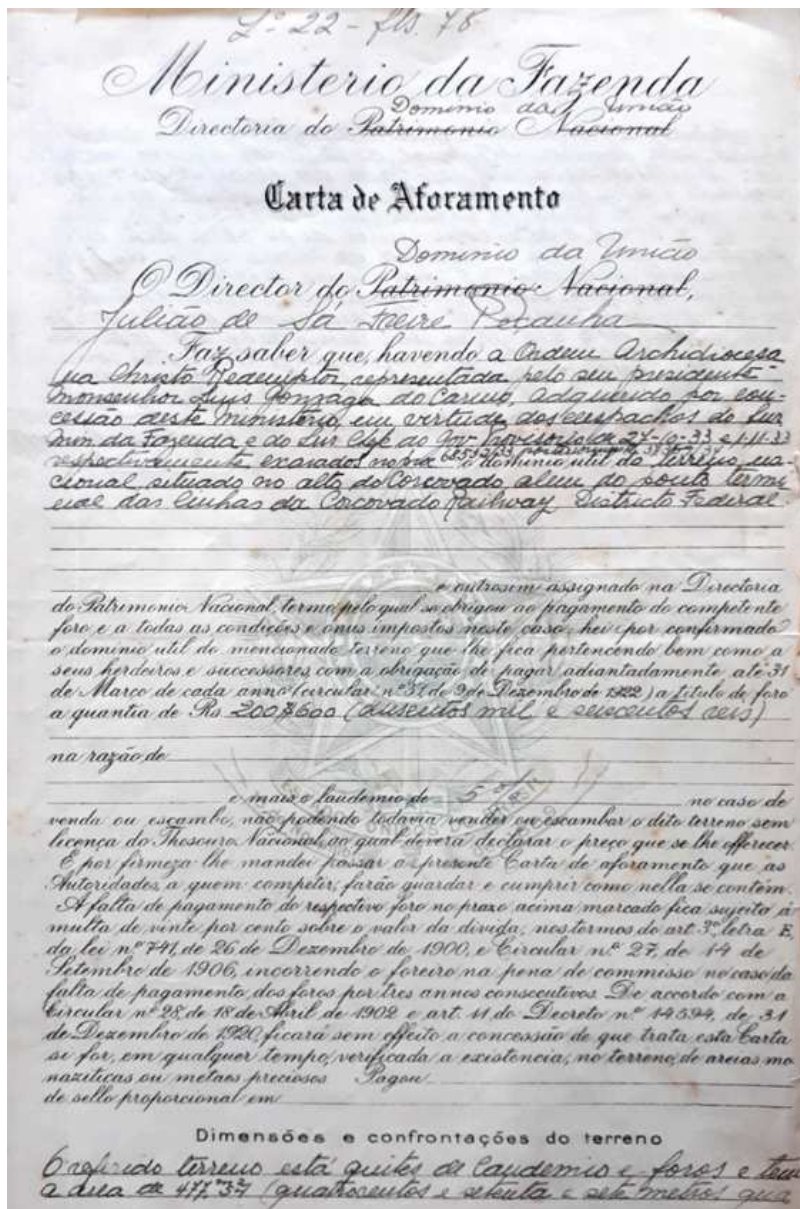 Lº 22 - fls. 78
Ministerio da Fazenda
Dominio da União
Directoria do Patrimonio Nacional
Carta de Aforamento
Dominio da União
O Director do Patrimonio Nacional,
Julião de Sá Freire Peçanha
Faz saber que, havendo a Ordem Archidiocesa
na Christo Redemptor, representada pelo seu presidente
Monsenhor Luis Gonzaga do Carmo, adquirido por con
cessão deste Ministerio, em virtude dos despachos do Snr
Min. da Fazenda e do Snr Chefe do Gov. Provisorio de 27-10-33 e 1-11-33
respectivamente exarados no o dominio util do terreno na
cional situado no alto do Corcovado alem do ponto termi
nal das linhas da Corcovado Railway Districto Federal.
e outrosim assignado na Directoria
do Patrimonio Nacional, termo pelo qual se obrigou ao pagamento do competente
foro e a todas as condições e onus impostos neste caso, hei por confirmado
o dominio util do mencionado terreno que lhe fica pertencendo bem como a
seus herdeiros e successores, com a obrigação de pagar adiantadamente até 31
de Março de cada anno (circular nº 57 de 9 de Dezembro de 1922) a titulo de foro
a quantia de Rs 200$600 (dusentos mil e seiscentos reis)
na razão de
e mais o laudemio de 5% no caso de
venda ou escambo, não podendo todavia vender ou escambar o dito terreno sem
licença do Thesouro Nacional, ao qual deverá declarar o preço que se lhe offerecer.
E por firmeza lhe mandei passar a presente Carta de aforamento que as
Autoridades, a quem competir, farão guardar e cumprir como nella se contém.
A falta de pagamento do respectivo foro no prazo acima marcado fica sujeito á
multa de vinte por cento sobre o valor da divida, nos termos do art. 3º, letra E,
da lei nº 741, de 26 de Dezembro de 1900, e Circular n.º 27, de 14 de
Setembro de 1906, incorrendo o foreiro na pena de commisso no caso da
falta de pagamento dos foros por tres annos consecutivos. De accordo com a
Circular nº 28, de 18 de Abril de 1902 e art. 11 do Decreto n.º 14594, de 31
de Dezembro de 1920, ficará sem effeito a concessão de que trata esta Carta
si for, em qualquer tempo, verificada a existencia, no terreno, de areias mo
naziticas ou metaes preciosos Pagou
de sello proporcional em
Dimensões e confrontações do terreno
O referido terreno está quites de laudemio e foros e tem
a area de 477,m²37 (quatrocentos e setenta e sete metros qua